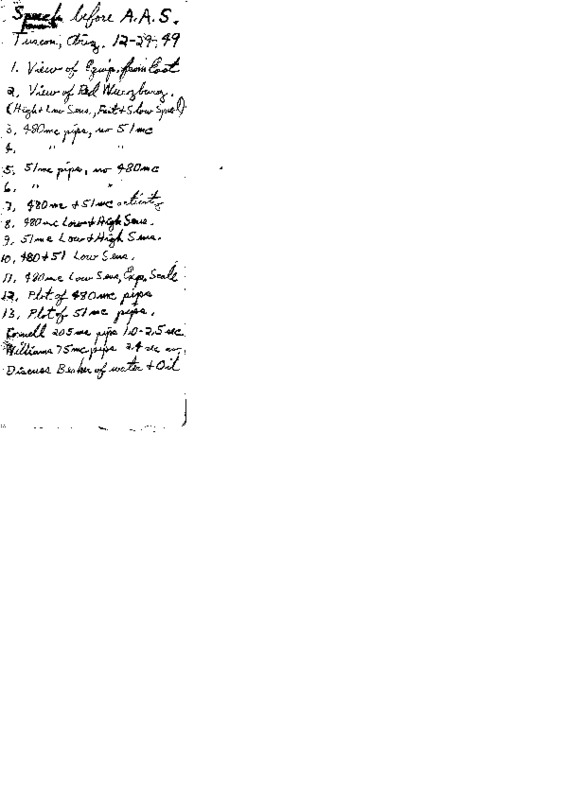 Speech before A.A.S.
Tuscon, Ariz. 12-29-49
1. View of Equip. from East
2. View of Red Wurzburg.
(High + Low Sens., Fast + Slow Speed)
3. 480mc pips, no 51mc
4. " "
5. 51mc pips, no 480mc
6. " "
7. 480mc + 51mc activity
8. 480mc Low + High Sens.
9. 51mc Low + High Sens.
10. 480 + 51 Low Sens.
11. 480mc Low Sens, Exp. Scale
12. Plot of 480mc pips
13. Plot of 51mc pips.
Cornell 205mc pips 1.0-2.5 sec
Williams 75mc pips 2.4 sec av.
Discuss Beaker of water + Oil